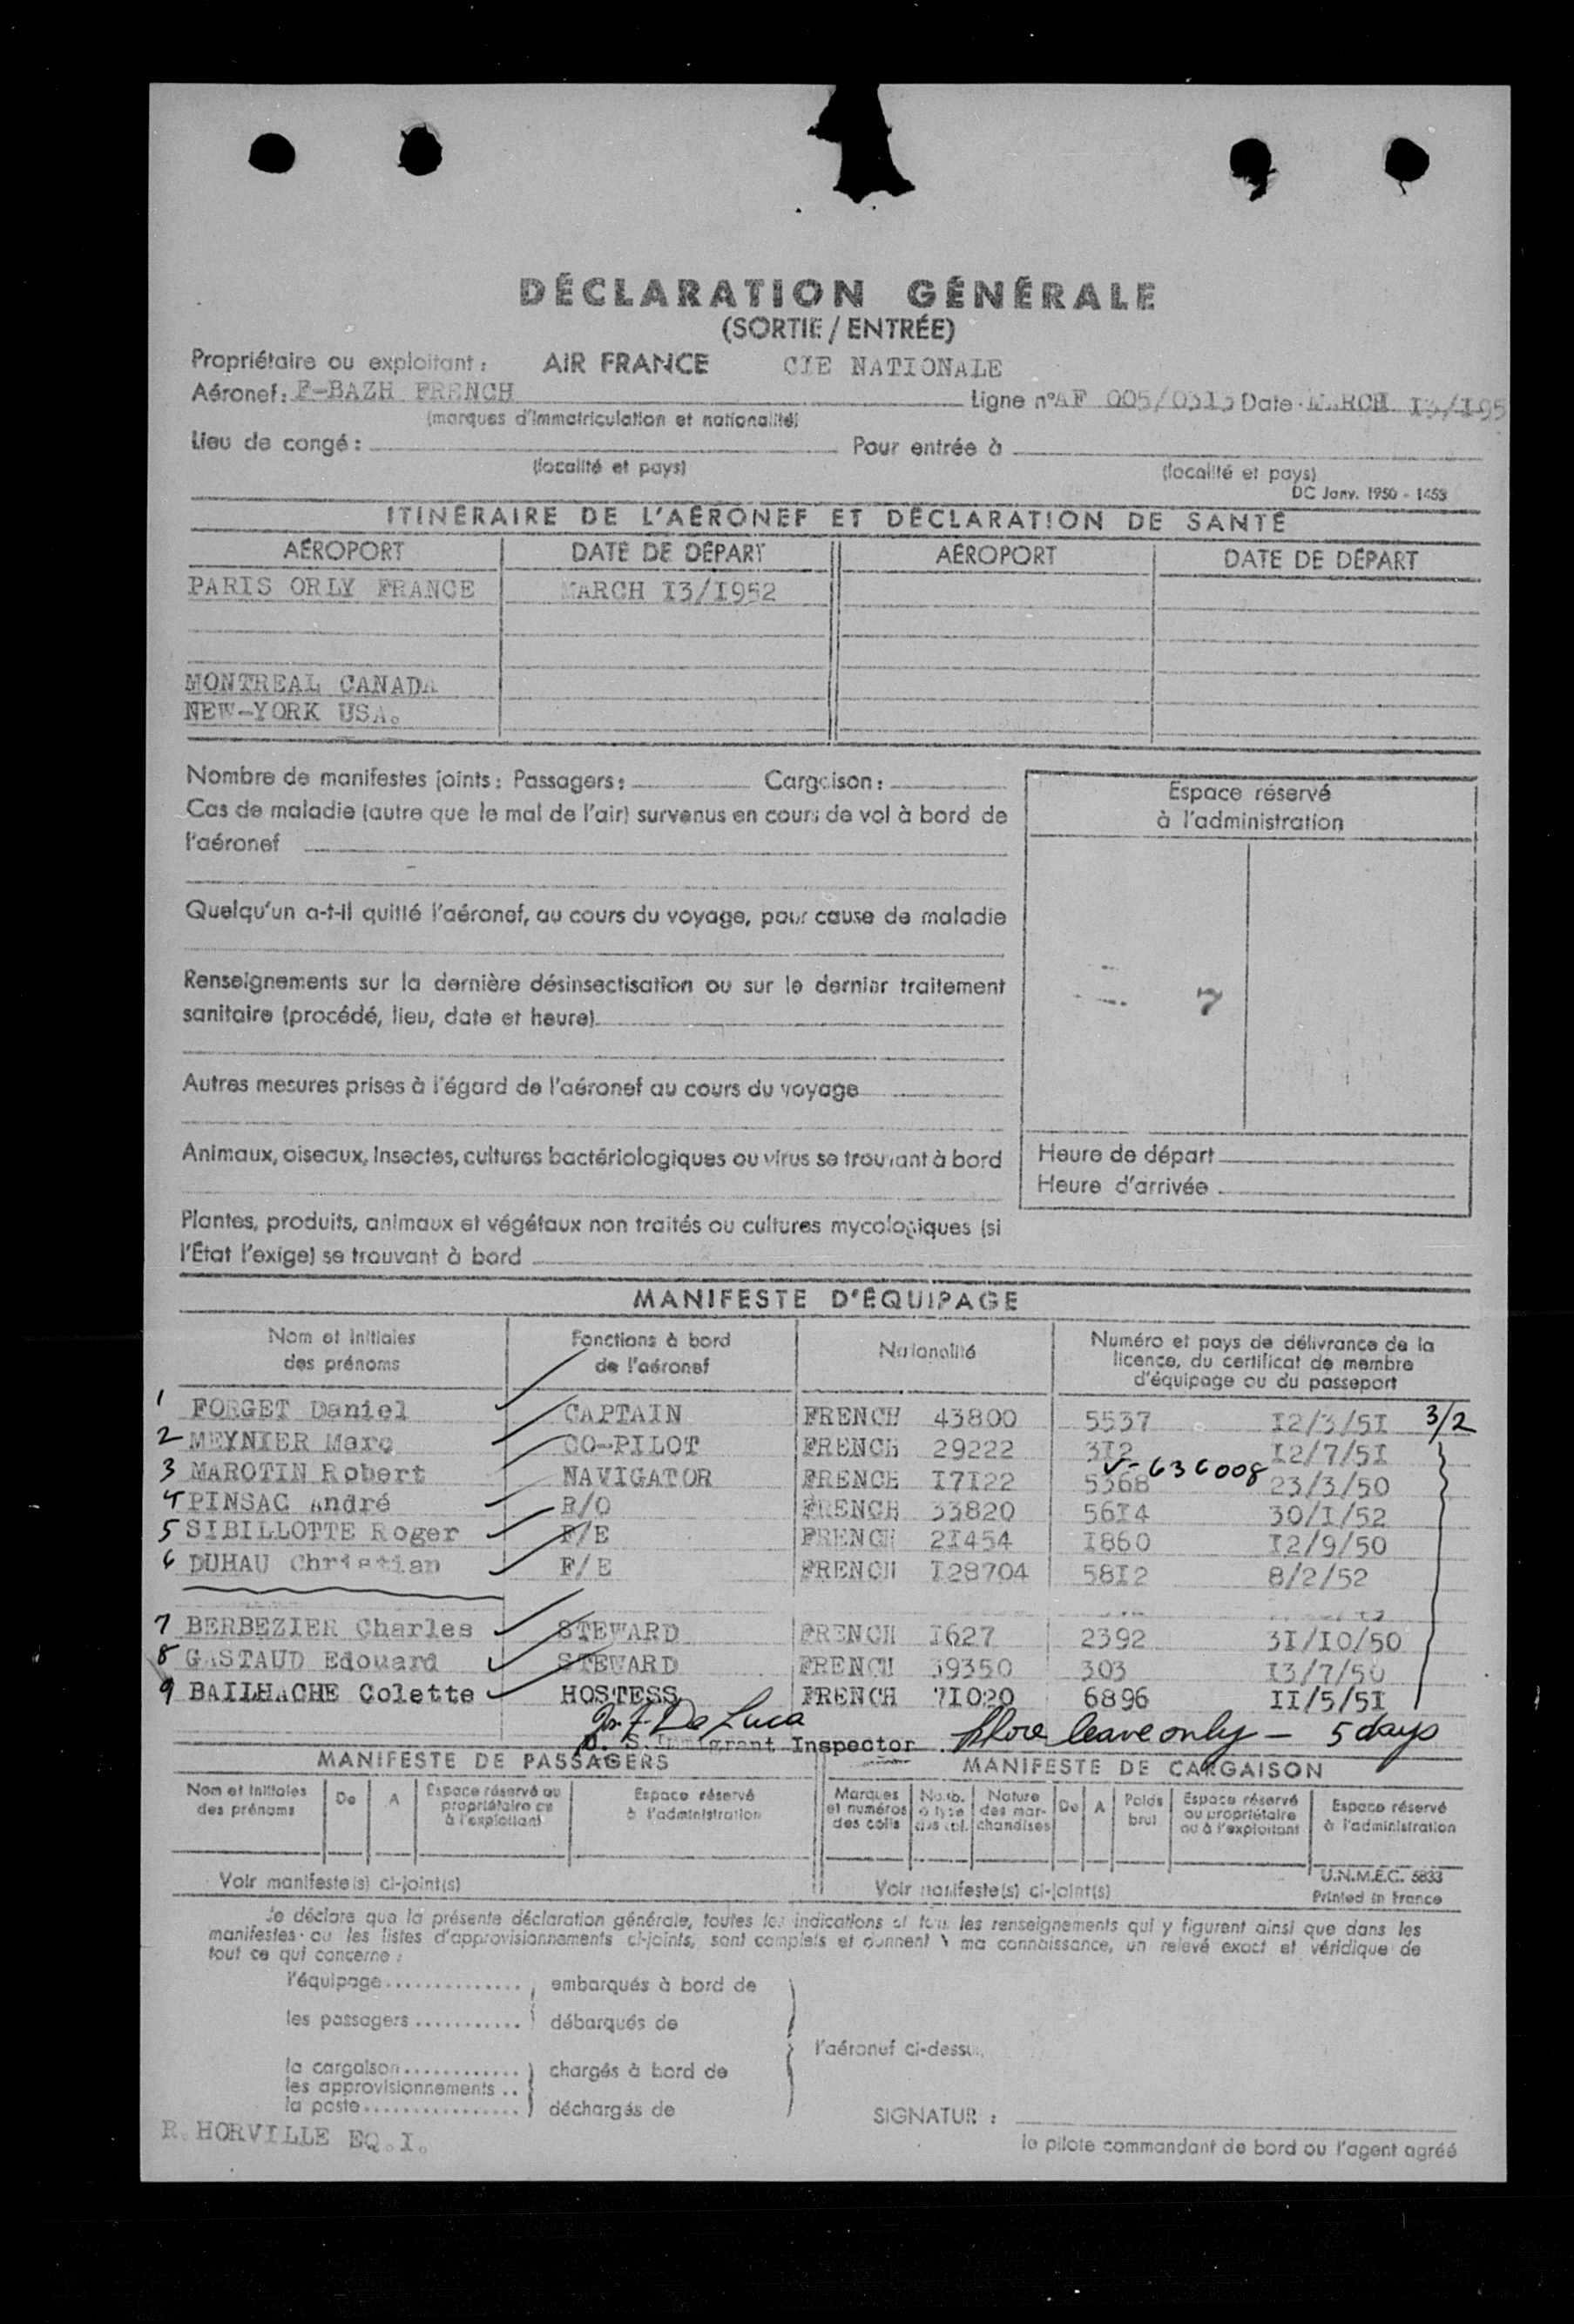 DÉCLARATION GÉNÉRALE
(SORTIE / ENTRÉE)
Propriétaire ou exploitant : AIR FRANCE CIE NATIONALE
Aéronef : F-BAZH FRENCH Ligne n° AF 005/0313 Date MARCH I3/I95
(marques d'immatriculation et nationalité)
Lieu de congé : Pour entrée à
(localité et pays) (localité et pays)
DC Janv. 1950 - 1453
ITINÉRAIRE DE L'AÉRONEF ET DÉCLARATION DE SANTÉ
AÉROPORT DATE DE DÉPART AÉROPORT DATE DE DÉPART
PARIS ORLY FRANCE MARCH I3/I952
MONTREAL CANADA
NEW-YORK USA.
Nombre de manifestes joints : Passagers : Cargaison :
Espace réservé
à l'administration
Cas de maladie (autre que le mal de l'air) survenus en cours de vol à bord de
l'aéronef
Quelqu'un a-t-il quitté l'aéronef, au cours du voyage, pour cause de maladie
Renseignements sur la dernière désinsectisation ou sur le dernier traitement
sanitaire (procédé, lieu, date et heure)
7
Autres mesures prises à l'égard de l'aéronef au cours du voyage
Animaux, oiseaux, insectes, cultures bactériologiques ou virus se trouvant à bord
Heure de départ
Heure d'arrivée
Plantes, produits, animaux et végétaux non traités ou cultures mycologiques (si
l'État l'exige) se trouvant à bord
MANIFESTE D'ÉQUIPAGE
Nom et initiales des prénoms Fonctions à bord de l'aéronef Nationalité Numéro et pays de délivrance de la licence, du certificat de membre d'équipage ou du passeport
1 FORGET Daniel CAPTAIN FRENCH 43800 5537 I2/3/5I 3/2
2 MEYNIER Marc CO-PILOT FRENCH 29222 3I2 I2/7/5I
V-636008
3 MAROTIN Robert NAVIGATOR FRENCH I7I22 5368 23/3/50
4 PINSAC André R/O FRENCH 33820 56I4 30/I/52
5 SIBILLOTTE Roger F/E FRENCH 2I454 I860 I2/9/50
6 DUHAU Christian F/E FRENCH I28704 58I2 8/2/52
7 BERBEZIER Charles STEWARD FRENCH I627 2392 3I/I0/50
8 GASTAUD Edouard STEWARD FRENCH 39350 303 I3/7/50
9 BAILHACHE Colette HOSTESS FRENCH 7I020 6896 II/5/5I
De Luca
U. S. Immigrant Inspector Shore leave only — 5 days
MANIFESTE DE PASSAGERS MANIFESTE DE CARGAISON
Nom et initiales des prénoms De A Espace réservé au propriétaire ou à l'exploitant Espace réservé à l'administration Marques et numéros des colis Nomb. et type des col. Nature des marchandises De A Poids brut Espace réservé au propriétaire ou à l'exploitant Espace réservé à l'administration
Voir manifeste(s) ci-joint(s) Voir manifeste(s) ci-joint(s)
U.N.M.E.C. 5833
Printed in France
Je déclare que la présente déclaration générale, toutes les indications et tous les renseignements qui y figurent ainsi que dans les
manifestes ou les listes d'approvisionnements ci-joints, sont complets et donnent à ma connaissance, un relevé exact et véridique de
tout ce qui concerne :
l'équipage.............. embarqués à bord de
les passagers ........... débarqués de
l'aéronef ci-dessus.
la cargaison............ chargés à bord de
les approvisionnements ..
la poste................ déchargés de
SIGNATURE :
R. HORVILLE EQ.I.
le pilote commandant de bord ou l'agent agréé